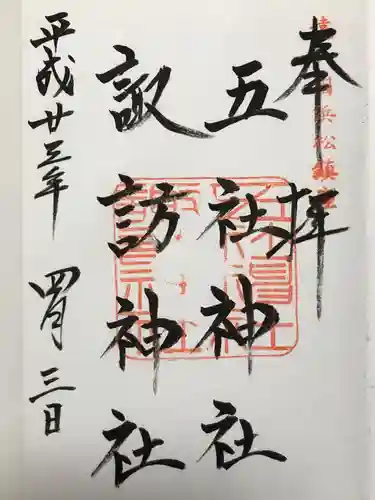 奉拝
浜松鎮
五社神社
諏訪神社
平成廿三年 四月三日